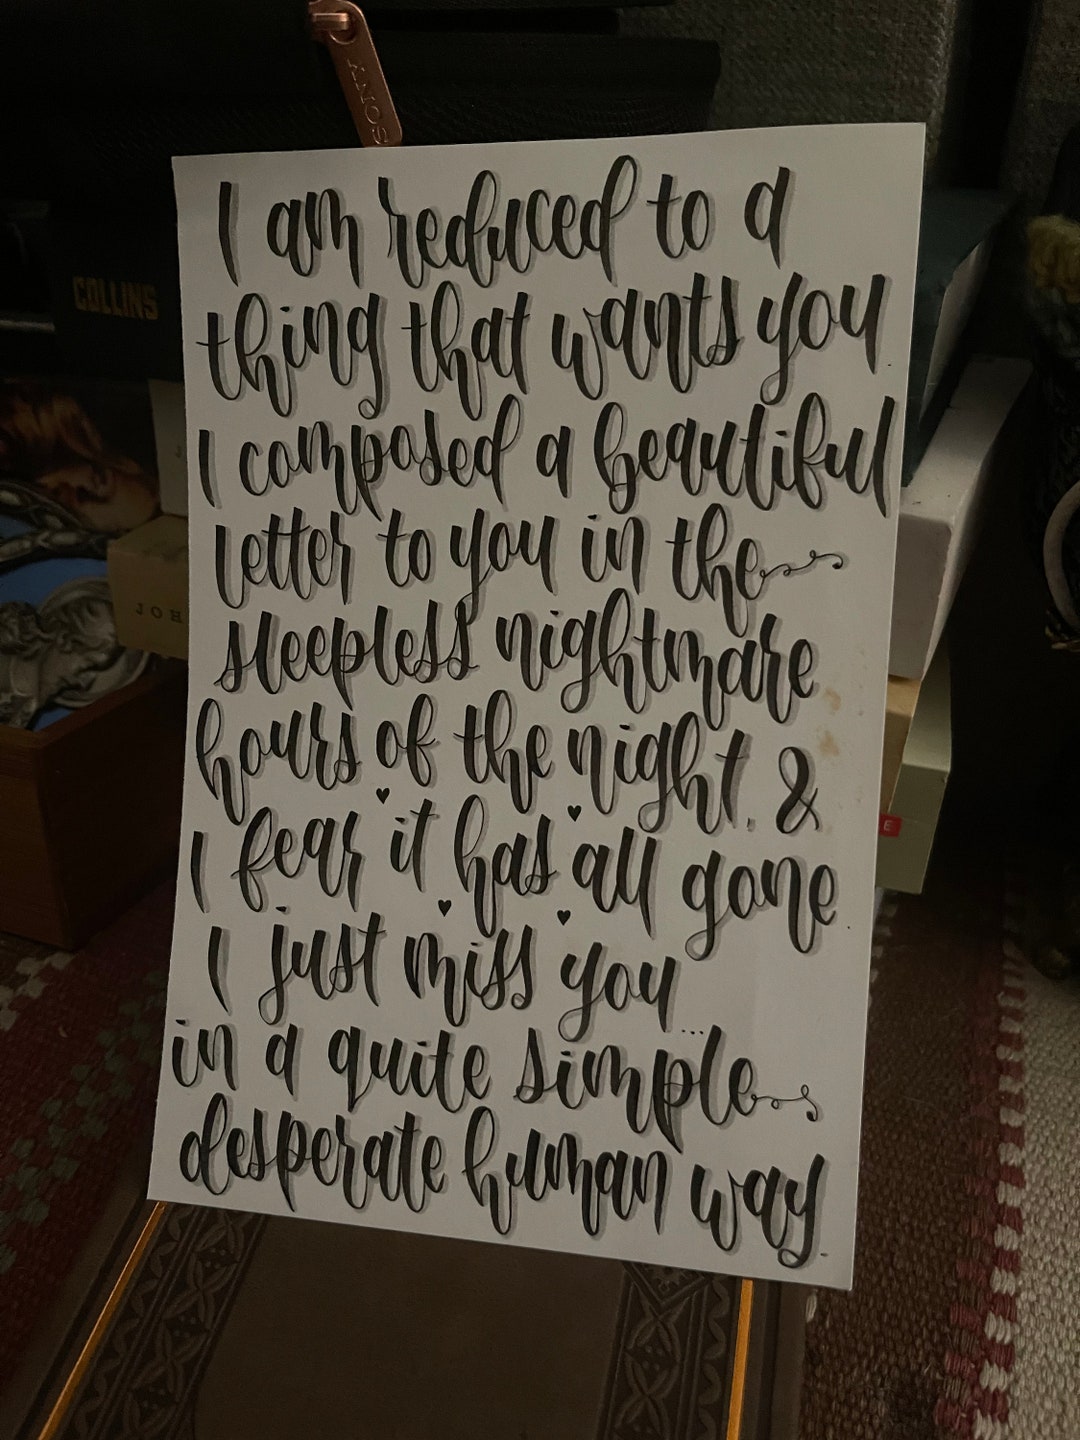 SONY
COLLINS
JOH
I am reduced to a
thing that wants you
I composed a beautiful
letter to you in the
sleepless nightmare
hours of the night. &
I fear it has all gone
I just miss you...
in a quite simple
desperate human way.